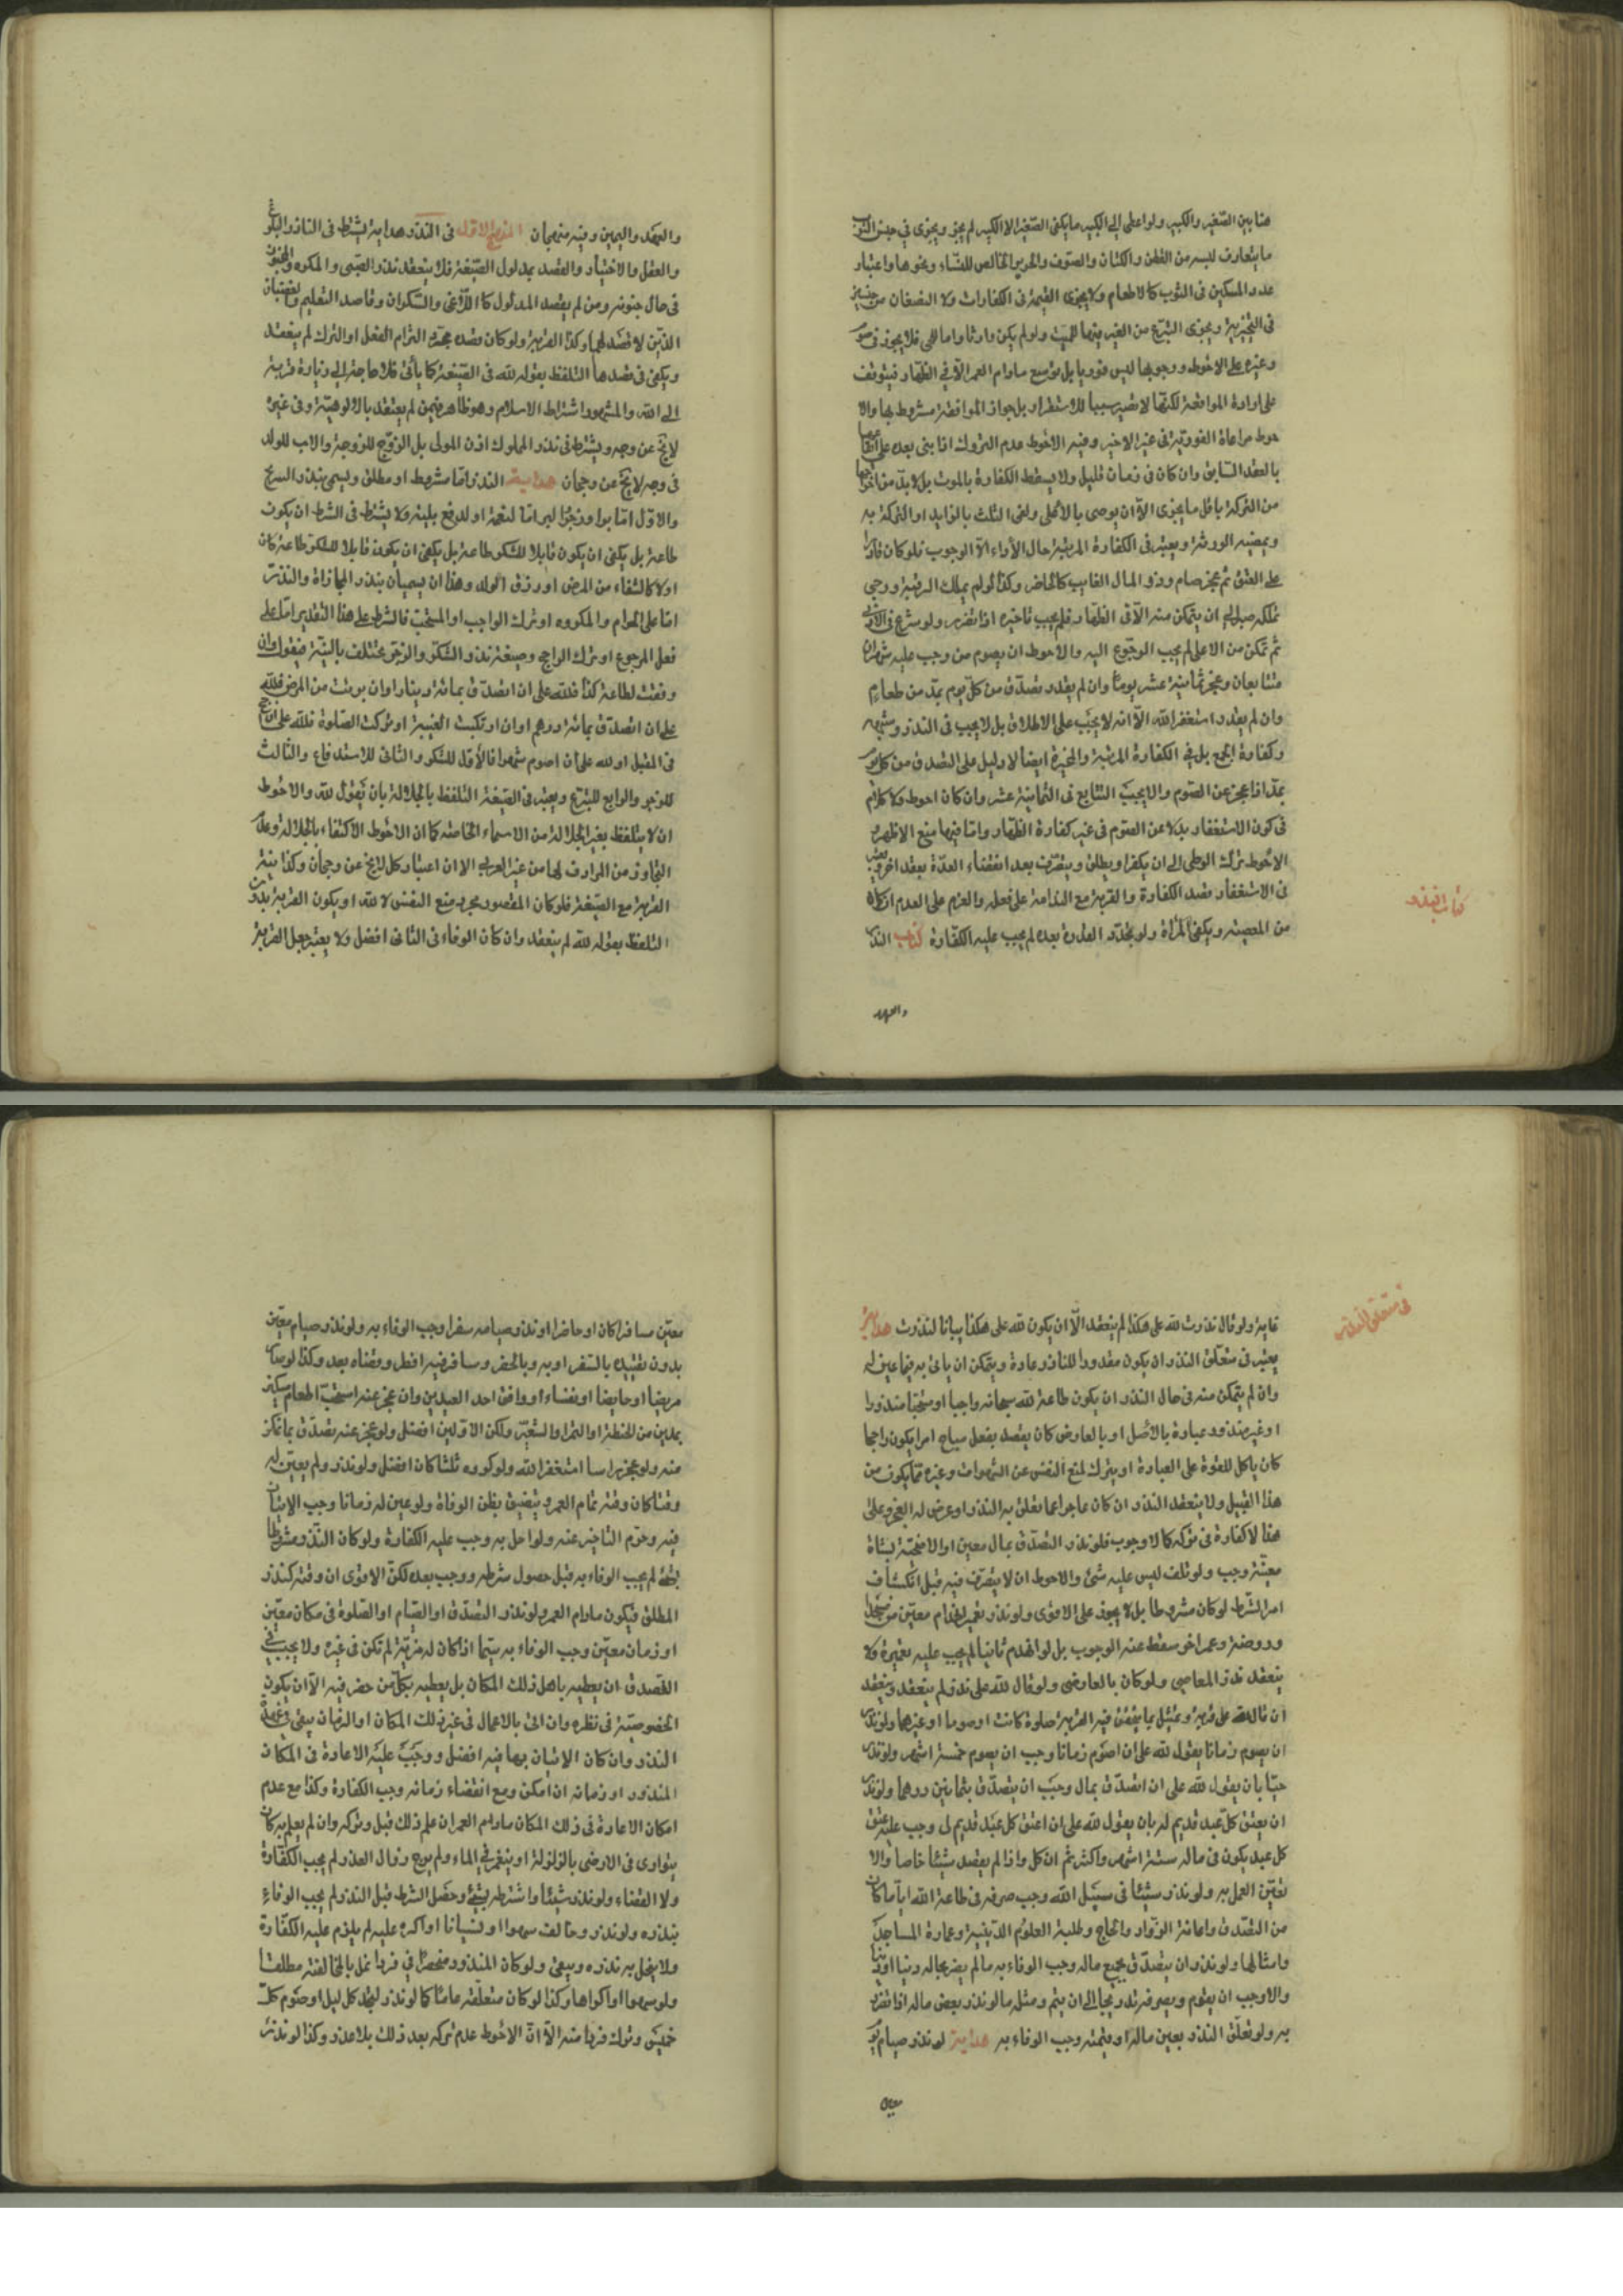 هنا بين الصّغير والكبير ولو اعطى الى الكبير ما يكفى الصّغير لا الكبير لم يجز ويجزى فى جنس الثوب
ما يتعارف لبسه من القطن والكتان والصّوف والحرير الخالص للنّساء ونحوها واعتبار
عدد المسكين فى الثوب كالاطعام ولا يجزى القيمة فى الكفارات ولا النصفان من جنسين
فى التخييرية ويجزى التبرّع من الغير فيها للميّت ولو لم يكن وارثا واما للحى فلا يجوز فى صوم
وغيره على الاحوط ووجوبها ليس فوريا بل توسع مادام العمر الاّ فى الظهار فيتوقف
على ارادة المواقعة لكنّها لا تصير سببا للاستقرار بل جواز المواقعة مشروط بها والا
حوط مراعاة الفوريّة فى غير الاخير وفيه الاحوط عدم التروك اذا بنى بعده على ايقاعها
بالعقد السّابق وان كان فى زمان قليل ولا يسقط الكفارة بالموت بل لا بدّ من اخراجها
من التركة باقل ما يجزى الاّ ان يوصى بالاعلى ولفى الثلث بالزايد او التركة به
ويمضيه الورثة ويعتبر فى الكفارة المرتبة حال الأداء لا الوجوب فلو كان قادرا
على العتق ثم عجز صام وذو المال الغايب كالحاضر وكذا لو لم يملك الرقبة ورجى
تملكه صبر الى ان يتمكن منه الاّ فى الظهار فلم يجب تاخيره اذا تضرر ولو شرع فى الادنى
ثم تمكن من الاعلى لم يجب الرجوع اليه والاحوط ان يصوم من وجب عليه شهران
متتابعان وعجز ثمانية عشر يوما وان لم يقدر تصدّق من كلّ يوم بمدّ من طعام
وان لم يقدر استغفر الله الاّ انه لا يجب على الاطلاق بل لا يجب فى النذر وشبهه
وكفارة الجمع بل فى الكفارة المرتبة والمخيرة ايضا لا دليل على التصدق من كل يوم
بمدّ اذا عجز عن الصّوم والا يجب التتابع فى الثمانية عشر وان كان احوط ولا كلام
فى كون الاستغفار بدلا عن الصّوم فى غير كفارة الظهار واما فيها منع الاظهر و
الاحوط ترك الوطى الى ان يكفر او يطلق ويتصرّف بعد انقضاء العدّة بعقد اخر ويعتبر
فى الاستغفار قصد الكفارة والقربة مع الندامة على فعله والعزم على العدم ان كان
من المعصية ويكفى المرّة ولو تجدّد القدرة بعده لم يجب عليه الكفّارة كتاب النذر
والعهد
كتاب النذر
والعهد واليمين وفيه منهجان المنهج الاول فى النّذر هداية يشترط فى الناذر البلوغ
والعقل والاختيار والقصد بمدلول الصّيغة فلا ينعقد نذر الصّبى والمكره والمجنون
فى حال جنونه ومن لم يقصد المدلول كاللاّغى والسّكران وقاصد التعليم والغضبان
الذّين لا قصد لهما وكذا القربة ولو كان قصده مجرّد التزام الفعل او الترك لم ينعقد
ويكفى فى قصدها التلفظ بقوله لله فى الصّيغة كما يأتى فلا حاجة الى زيادة قربة
الى الله والمشهور اشتراط الاسلام وهو ظاهر فيمن لم يعتقد بالالوهيّة وفى غيره
لا يخ عن وجه ويشترط فى نذر المملوك اذن المولى بل الزوج للزوجة والاب للولد
فى وجه لا يخ عن رجحان هداية النذر امّا مشروط او مطلق ويسمى بنذر التبرّع
والاوّل امّا برا وزجرا لبر امّا لنعمة او لدفع بلية ولا يشترط فى الشرط ان يكون
طاعة بل يكفى ان يكون قابلا للشكر طاعة بل يكفى ان يكون قابلا للشكر طاعة كان
اولا كالشفاء من المرض او رزق الولد وهذا ان يسميان بنذر المجازاة والنذر
امّا على الحرام والمكروه او ترك الواجب او المستحبّ فالشرط على هذا التقدير امّا على
فعل المرجوع او ترك الراجح وصيغة نذر الشكر والزجر تختلف بالنيّة فيقول ان
وفقت لطاعة كذا فلله على ان اتصدّق بمائة دينار او ان برئت من المرض فلله
على ان اتصدّق بمائة درهم او ان ارتكبت الغيبة او تركت الصّلوة فلله على ان احج
فى المقبل او لله على ان اصوم شهرا فالأوّل للشكر والثانى للاستدفاع والثالث
للزجر والرابع للتبرّع ويعتبر فى الصّيغة التلفظ بالجلالة بان يقول لله والاحوط
ان لا يتلفظ بغير الجلالة من الاسماء الخاصّة كما ان الاحوط الاكتفاء بالجلالة وعدم
التجاوز من المرادف لها من غير العربى الا ان اعتبار كل لا يخ عن رجحان وكذا نيّة
القربة مع الصّيغة فلو كان المقصود مجرد منع النفس لا لله او يكون القربة بدون
التلفظ بقوله لله لم ينعقد وان كان الوفاء فى الثانى افضل ولا يعتبر جعل القربة
غاية ولو قال نذرت لله على هكذا لم ينعقد الاّ ان يكون لله على هكذا بيانا لنذرت هداية
فى متعلق النذر
يعتبر فى متعلّق النذر ان يكون مقدورا للناذر عادة ويتمكن ان يأتى به فيما عين له
وان لم يتمكن منه فى حال النذر ان يكون طاعة لله سبحانه واجبا او مستحبّا منذورا
او غير منذور عبادة بالأصل او بالعارض كان يقصد بفعل مباح امرا يكون راجحا
كان ياكل للقوة على العبادة او يترك لمنع النفس عن الشهوات وغيره ممّا يكون من
هذا القبيل ولا ينعقد النذر ان كان عاجزا عما تعلق به النذر او عرض له العجز وعلى
هذا لا كفارة فى تركه كالا وجوب فلو نذر التصدّق بمال معين او الاضحيّة بشاة
معيّنة وجب ولو تلف ليس عليه شئ والاحوط ان لا يتصرّف فيه قبل انكشاف
امر الشرط لو كان مشروطا بل لا يجوز على الاقوى ولو نذر تعمير انهدام معيّن من مسجد
وروضة وعمر اخر سقط عنه الوجوب بل لو انهدم ثانيا لم يجب عليه تعميره ولا
ينعقد نذر المعاصى ولو كان بالعارض ولو قال لله على نذر لم ينعقد وينعقد
ان قال لله على قربة ويمتثل بما يتحقق فيه القربة صلوة كانت او صوما او غيرهما ولو نذر
ان يصوم زمانا بقول لله على ان اصوم زمانا وجب ان يصوم خمسة اشهر ولو نذر
حينا بان يقول لله على ان اتصدّق بمال وجب ان يتصدّق بثمانين درهما ولو نذر
ان يعتق كلّ عبد قديم له بان يقول لله على ان اعتق كل عبد قديم لى وجب عليه عتق
كل عبد يكون فى ماله ستة اشهر واكثر ثم ان كل واذا لم يقصد شيئا خاصا والا
تعيّن العمل به ولو نذر شيئا فى سبيل الله وجب صرفه فى طاعة الله ايّا ما كان
من التصدق واعانة الزوّار والحاج وطلبة العلوم الدّينيّة وعمارة المساجد
وامثالها ولو نذر ان يتصدّق بجميع ماله وجب الوفاء به ما لم يضر بحاله دنيا او دينا
والا وجب ان يقوم ويصرفه تدريجا الى ان يتم ومثله ما لو نذر بعض ماله اذا تضرّر
به ولو تعلّق النذر بعين ماله او قيمته وجب الوفاء به هداية لو نذر صيام يوم
معين
معيّن مسافرا كان او حاضرا او نذر صيامه سفرا وجب الوفاء به ولو نذر صيام معيّن
بدون تقييده بالسّفر او به وبالحضر وسافر فيه افطر وقضاه بعد وكذا لو صار
مريضا او حايضا او نفساء او وافق احد العيدين وان عجز عنه استحبّ اطعام مسكين
بمدين من الحنطة او التمر او الشعير ولكن الاوّلين افضل ولو عجز عنه تصدّق بما تمكن
منه ولو عجز براسا استغفر الله ولو كرره ثلثا كان افضل ولو نذر ولم يعيّن له
وقتا كان وقته تمام العمر ويتضيق بظن الوفاة ولو عين له زمانا وجب الاتيان
فيه وحرم التاخير عنه ولو اخل به وجب عليه الكفارة ولو كان النّذر مشروطا
بشئ لم يجب الوفاء به قبل حصول شرطه ووجب بعده لكن الاقوى ان وقته كنذر
المطلق فيكون مادام العمر ولو نذر التصدّق او الصّيام او الصّلوة فى مكان معيّن
او زمان معيّن وجب الوفاء به سيّما اذا كان له مزيّة لم تكن فى غيره ولا يجب فى
التصدق ان يعطيه باهل ذلك المكان بل يعطيه بكل من حضر فيه الاّ ان يكون
الخصوصيّة فى نظره وان اتى بالاعمال فى غير ذلك المكان او الزمان بقى فى عهدة
النذر وان كان الاتيان بها فيه افضل ووجب عليه الاعادة فى المكان
المنذور او زمانه ان امكن ومع انقضاء زمانه وجب الكفارة وكذا مع عدم
امكان الاعادة فى ذلك المكان مادام العمر ان علم ذلك قبل وتركه وان لم يعلم به كان
يتوارى فى الارض بالزلزلة او ينغمر فى الماء ولم يرج زوال العذر لم يجب الكفّارة
ولا القضاء ولو نذر شيئا واشترطه بشئ وحصل الشرط قبل النذر لم يجب الوفاء
بنذره ولو نذر وخالف سهوا او نسيانا او اكره عليه لم يلزم عليه الكفّارة
ولا ينحل به نذره ويبقى ولو كان المنذور منحصرا فى فرد انحل بالمخالفة مطلقا
ولو سهوا او اكراها وكذا لو كان متعلّقه عامّا كما لو نذر تهجد كل ليل او صوم كلّ
خميس وترك فردا منه الاّ انّ الاحوط عدم تركه بعد ذلك بلا عذر وكذا لو نذر